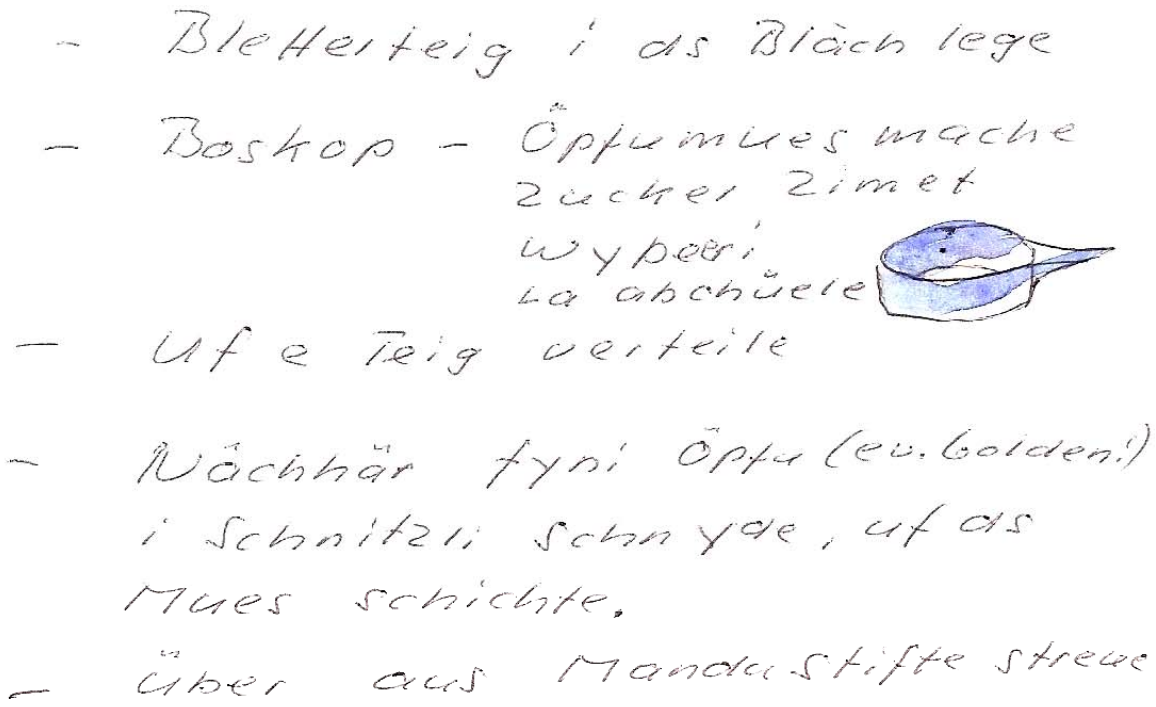 - Bletterteig i ds Bläch lege
- Boskop - Öpfumues mache
Zucker Zimet
Wybeeri
La abchüele
- Uf e Teig verteile
- Nächhär fyni Öpfu (ev. Golden!)
i Schnitzli schnyde, uf ds
Mues schichte.
- Über aus Mandustifte streue